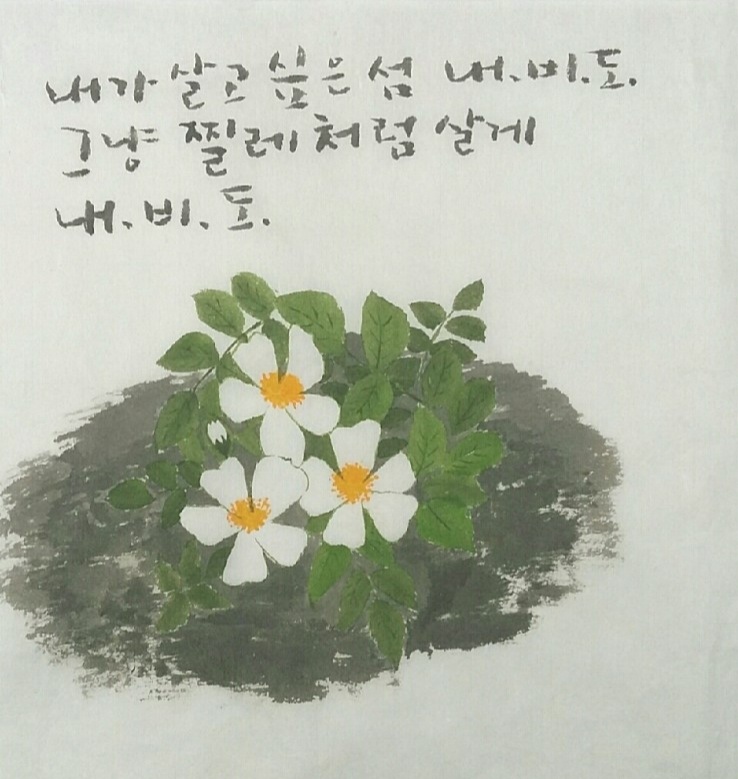 내가 살고 싶은 섬 내.비.도.
그냥 찔레처럼 살게
내.비.도.